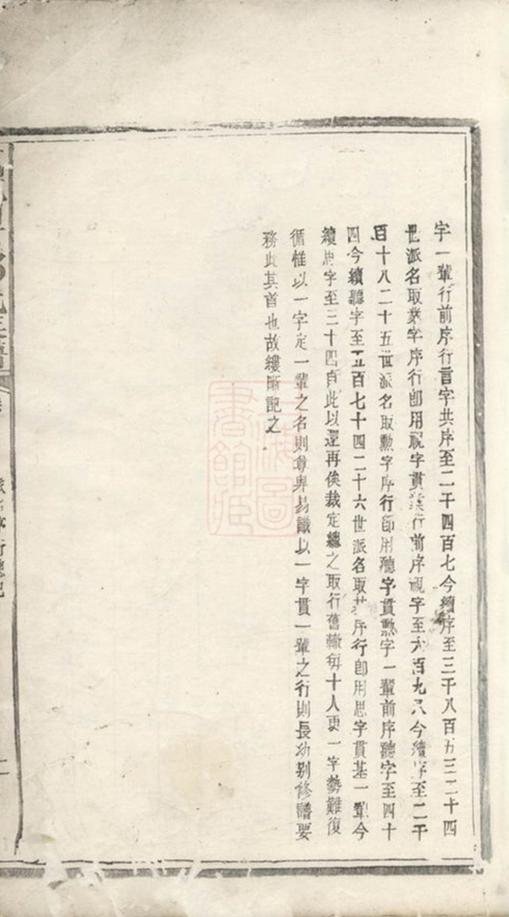 字一輩行前序行言字共序至二千四百七今續序至三千八百五三二十四
世派名取業字序行卽用視字貫業行前序視字至六百九八今續序至二千
百十八二十五世派名取勲字序行卽用聽字貫勲字一輩前序聽字至四十
四今續聽字至五百七十四二十六世派名取基序行卽用思字貫基一輩今
續思字至三十四自此以還再俟裁定總之取行舊轍每十人更一字勢難復
循惟以一字定一輩之名則尊卑易識以一字貫一輩之行則長幼别修譜要
務此其首也故縷晰記之
上海圖書館藏